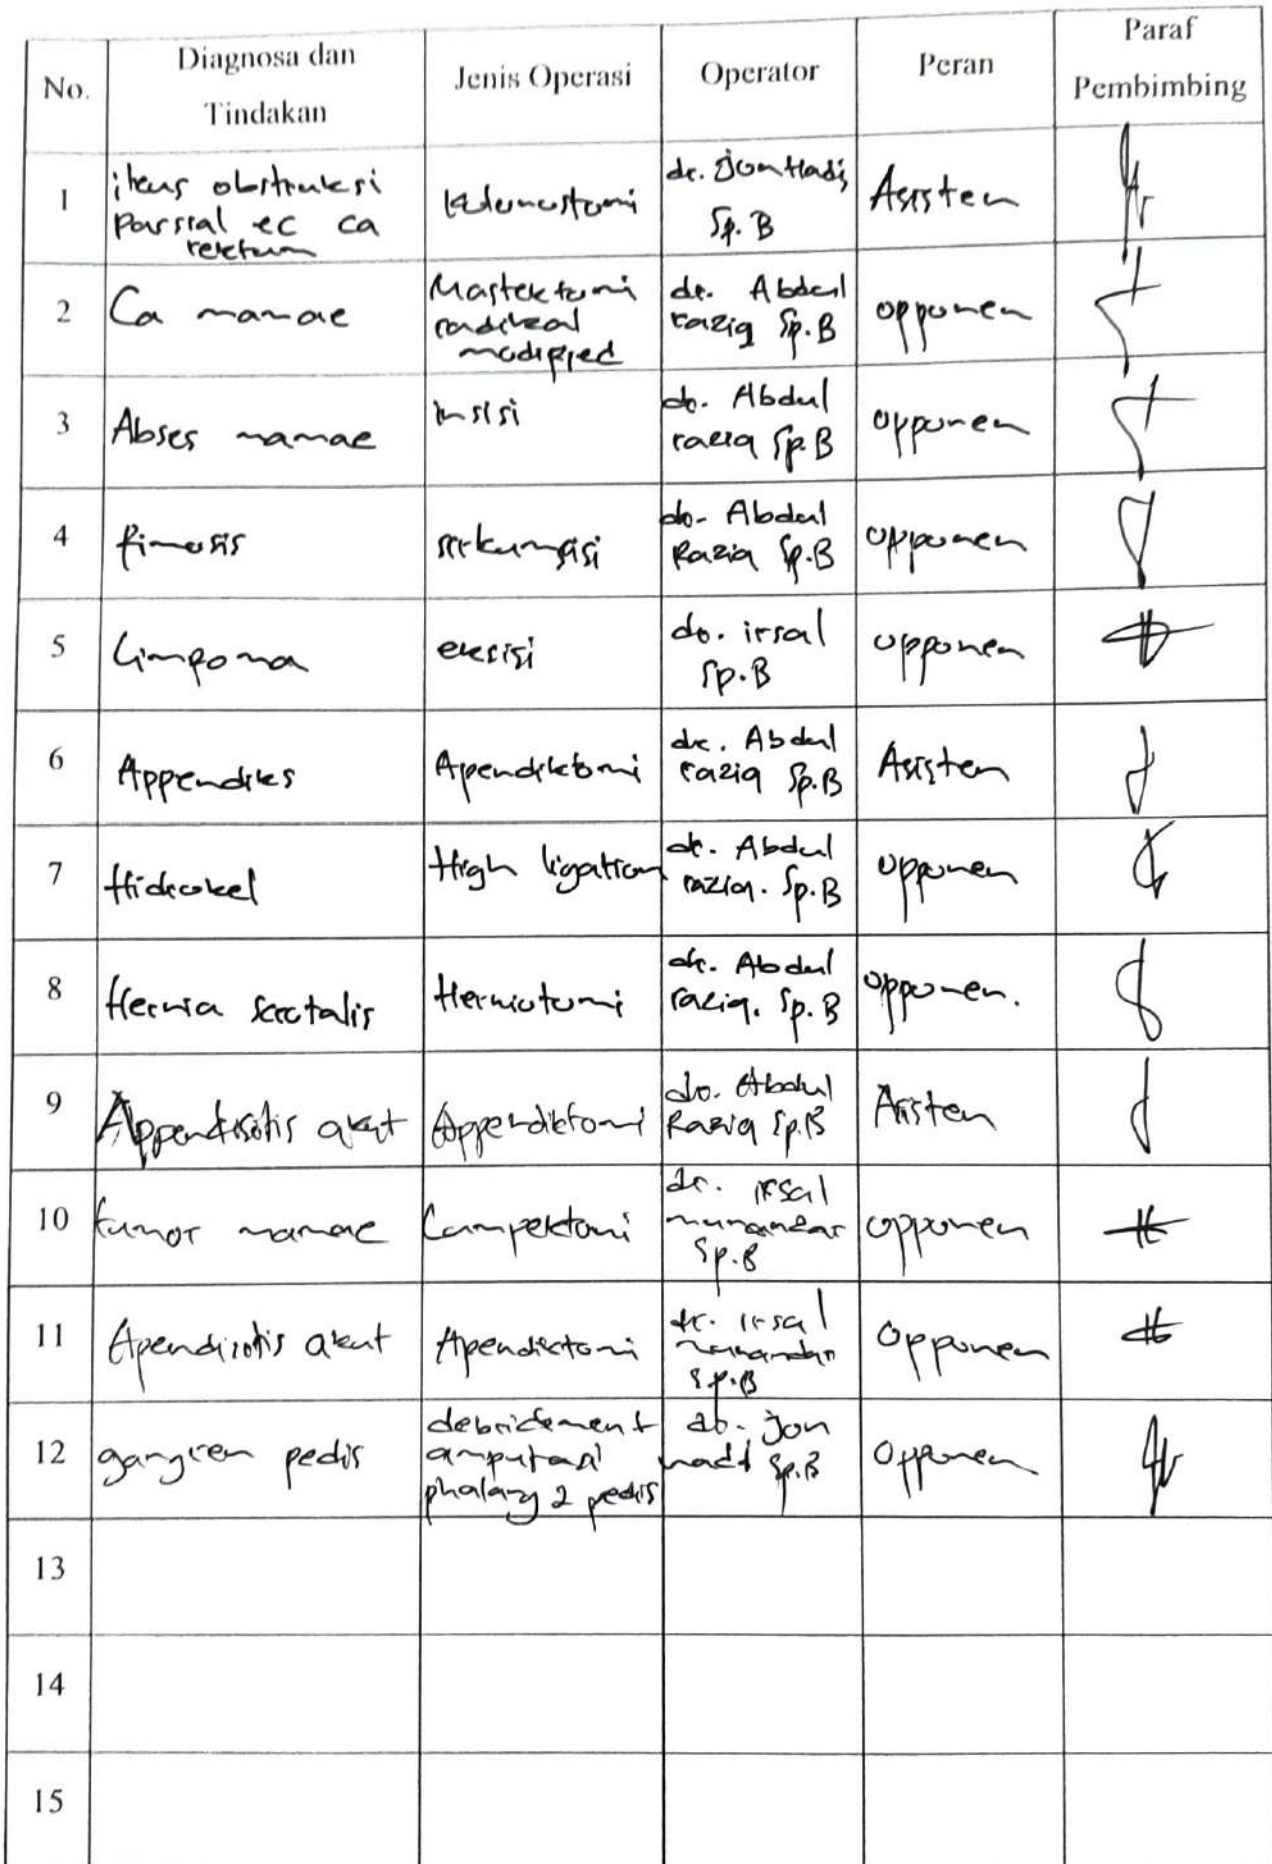 No. Diagnosa dan Tindakan Jenis Operasi Operator Peran Paraf Pembimbing
1 ileus obstruksi parsial ec ca rektum dr. Jon Hadi, Sp. B Asisten
2 Ca mamae Mastektomi radikal modified dr. Abdul raziq Sp.B opponen
3 Abses mamae insisi dr. Abdul raziq Sp.B opponen
4 fimosis sirkumsisi dr. Abdul Raziq Sp.B opponen
5 Limpoma eksisi dr. irsal Sp.B opponen
6 Appendiks Apendiktomi dr. Abdul raziq Sp.B Asisten
7 Hidrokel High ligation dr. Abdul raziq. Sp.B opponen
8 Hernia scrotalis Herniotomi dr. Abdul raziq. Sp.B opponen.
9 Appendisitis akut Appendiktomi dr. Abdul Raziq Sp.B Asisten
10 tumor mamae Lumpektomi dr. irsal munandar Sp.B opponen
11 Apendisitis akut Apendectomi dr. irsal munandar Sp.B Opponen
12 gangren pedis debridement amputasi phalang 2 pedis dr. Jon hadi Sp.B Opponen
13
14
15